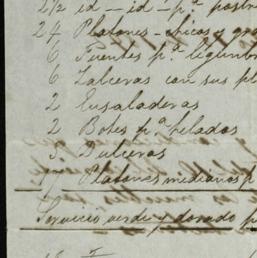 2½ id — id - pª postre
24 Platones - chicos y gra
6 Fuentes pª legumbr
6 Salceras con sus pl
2 Ensaladeras
2 Botes pª helados
3 Dulceras
Platones medianos p
Servicio verde y dorado p